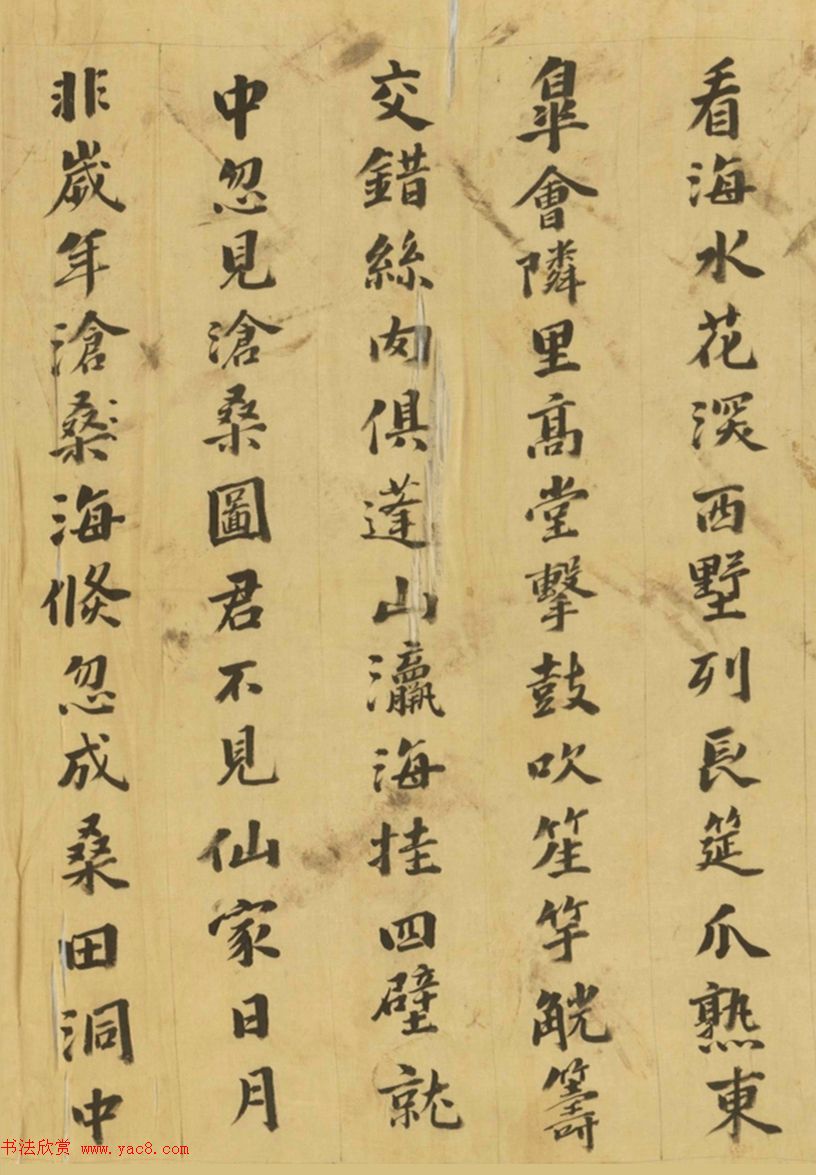 看海水花深西墅列長筵瓜熟東
皐會隣里髙堂擊鼓吹笙竽觥籌
交錯絲肉俱蓬山瀛海挂四壁就
中忽見滄桑圖君不見仙家日月
非歲年滄桑海倏忽成桑田洞中
书法欣赏 www.yac8.com